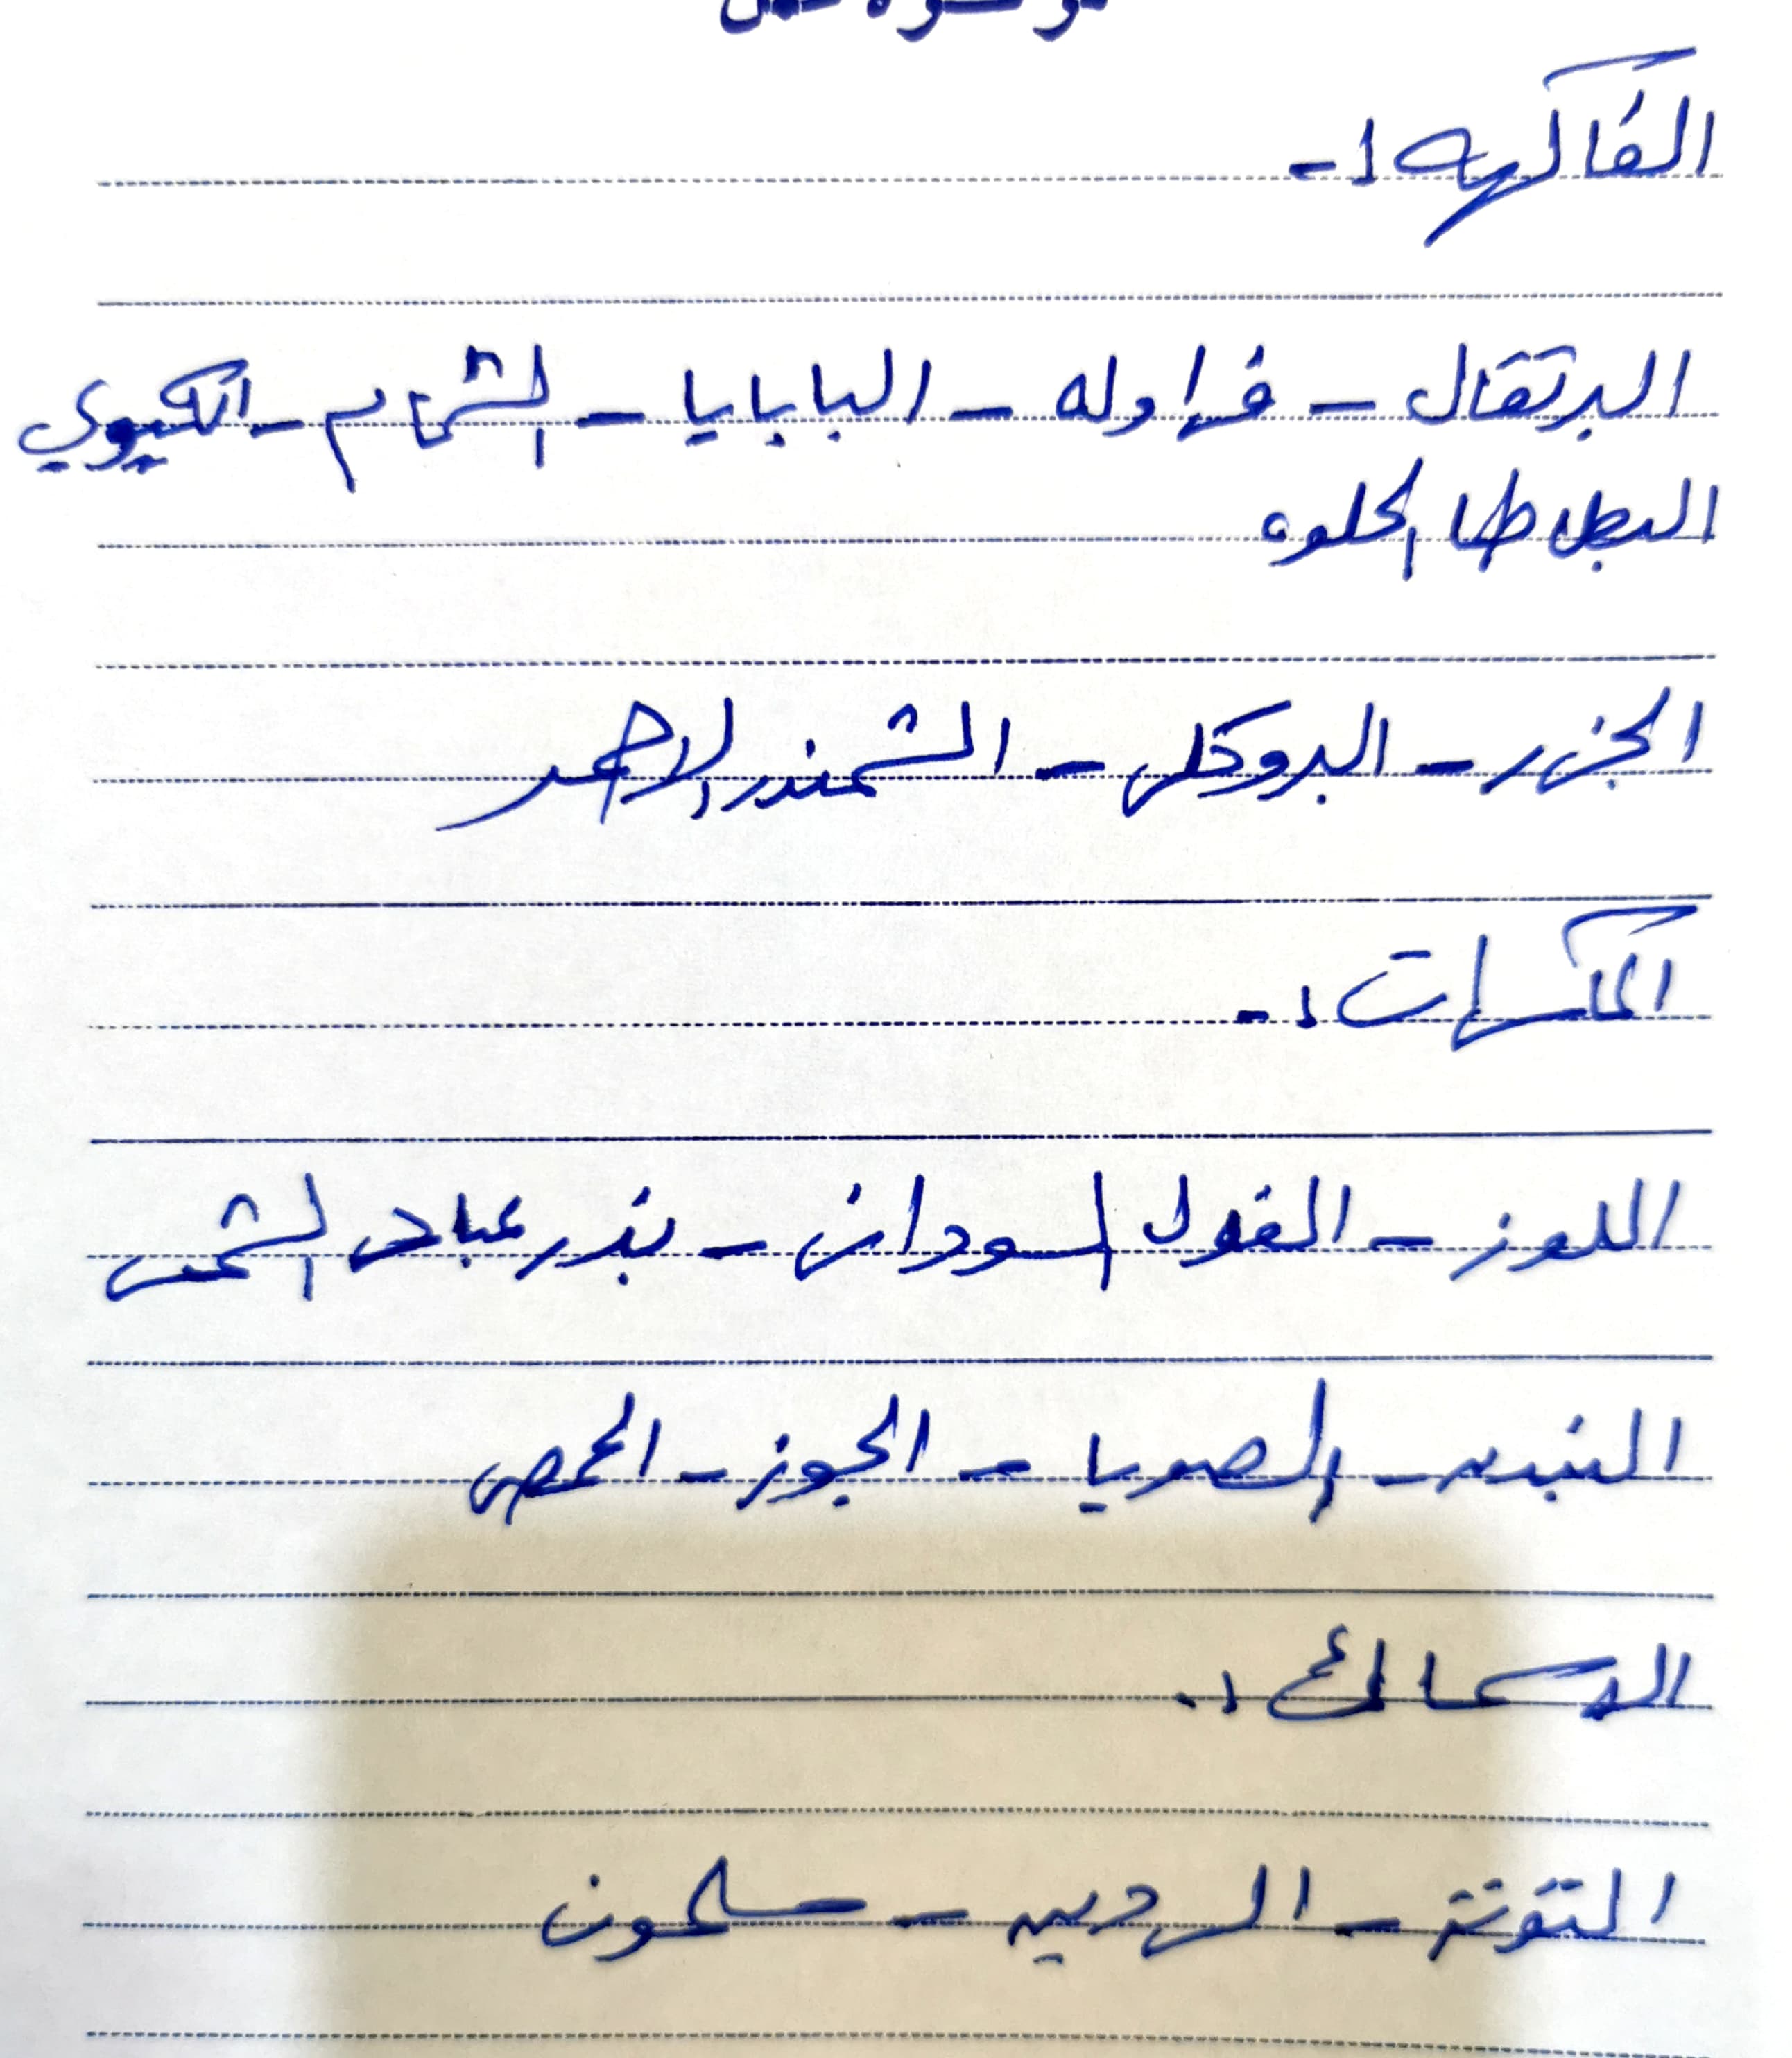 الفاكهه :-
البرتقال - فراوله - البابايا - الشمام - الكيوي
البطاطا الحلوه
الجزر - البروكلي - الشمندر الاحمر
المكسرات :-
اللوز - الفول السوداني - بذر عباد الشمس
البندق - الصويا - الجوز - الحمص
الاسماك :-
التونة - السردين - سلمون